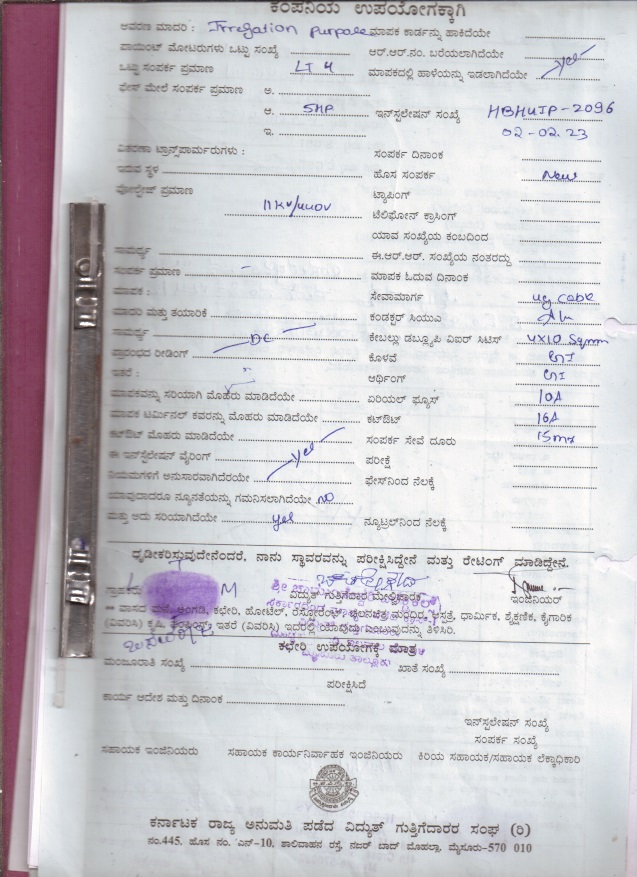 ಕಂಪನಿಯ ಉಪಯೋಗಕ್ಕಾಗಿ
ಆವರಣ ಮಾದರಿ : Irregation purpose ಮಾಪಕ ಕಾರ್ಡನ್ನು ಹಾಕಿದೆಯೇ
ಪಾಯಿಂಟ್ ಮೋಟರುಗಳು ಒಟ್ಟು ಸಂಖ್ಯೆ ಆರ್.ಆರ್.ನಂ. ಬರೆಯಲಾಗಿದೆಯೇ
ಒಟ್ಟು ಸಂಪರ್ಕ ಪ್ರಮಾಣ LT 4 ಮಾಪಕದಲ್ಲಿ ಹಾಳೆಯನ್ನು ಇಡಲಾಗಿದೆಯೇ yes
ಫೇಸ್ ಮೇಲೆ ಸಂಪರ್ಕ ಪ್ರಮಾಣ ಅ.
ಆ. 5HP ಇನ್‌ಸ್ಟಲೇಷನ್ ಸಂಖ್ಯೆ HBHUIP-2096
ಇ. 02-02.23
ವಿತರಣಾ ಟ್ರಾನ್ಸ್‌ಪಾರ್ಮರುಗಳು : ಸಂಪರ್ಕ ದಿನಾಂಕ
ಇರುವ ಸ್ಥಳ ಹೊಸ ಸಂಪರ್ಕ New
ವೋಲ್ಟೇಜ್ ಪ್ರಮಾಣ ಟ್ಯಾಪಿಂಗ್
11KV/440V ಟೆಲಿಫೋನ್ ಕ್ರಾಸಿಂಗ್
ಯಾವ ಸಂಖ್ಯೆಯ ಕಂಬದಿಂದ
ಸಾಮರ್ಥ್ಯ ಈ.ಆರ್.ಆರ್. ಸಂಖ್ಯೆಯ ನಂತರದ್ದು
ಸಂಪರ್ಕ ಪ್ರಮಾಣ - ಮಾಪಕ ಓದುವ ದಿನಾಂಕ
ಮಾಪಕ : ಸೇವಾಮಾರ್ಗ ug cable
ಮಾದರಿ ಮತ್ತು ತಯಾರಿಕೆ ಕಂಡಕ್ಟರ್ ಸಿಯುಎ Alu
ಸಾಮರ್ಥ್ಯ DC ಕೇಬಲ್ಲು ಡಬ್ಲ್ಯೂಪಿ ವಿಐರ್ ಸಿಟಿಸ್ 4X10 Sqmm
ಪ್ರಾರಂಭದ ರೀಡಿಂಗ್ ಕೊಳವೆ GI
ಇತರೆ : ಆರ್ಥಿಂಗ್ GI
ಮಾಪಕವನ್ನು ಸರಿಯಾಗಿ ಮೊಹರು ಮಾಡಿದೆಯೇ ಏರಿಯಲ್ ಫ್ಯೂಸ್ 10A
ಮಾಪಕ ಟರ್ಮಿನಲ್ ಕವರನ್ನು ಮೊಹರು ಮಾಡಿದೆಯೇ ಕಟ್‌ಔಟ್ 16A
ಕಟ್‌ಔಟ್ ಮೊಹರು ಮಾಡಿದೆಯೇ ಸಂಪರ್ಕ ಸೇವೆ ದೂರು 15mx
ಈ ಇನ್‌ಸ್ಟಲೇಷನ್ ವೈರಿಂಗ್ yes ಪರೀಕ್ಷೆ
ನಿಯಮಗಳಿಗೆ ಅನುಸಾರವಾಗಿದೆರೆಯೇ ಫೇಸ್‌ನಿಂದ ನೆಲಕ್ಕೆ
ಯಾವುದಾದರೂ ನ್ಯೂನತೆಯನ್ನು ಗಮನಿಸಲಾಗಿದೆಯೇ NO
ಮತ್ತು ಅದು ಸರಿಯಾಗಿದೆಯೇ yes ನ್ಯೂಟ್ರಲ್‌ನಿಂದ ನೆಲಕ್ಕೆ
ಧೃಡೀಕರಿಸುವುದೇನೆಂದರೆ, ನಾನು ಸ್ಥಾವರವನ್ನು ಪರೀಕ್ಷಿಸಿದ್ದೇನೆ ಮತ್ತು ರೇಟಿಂಗ್ ಮಾಡಿದ್ದೇನೆ.
ಗ್ರಾಹಕರು L T M ವಿದ್ಯುತ್ ಗುತ್ತಿಗೆದಾರ ಮೇಲ್ವಿಚಾರಕ ಇಂಜಿನಿಯರ್
** ವಾಸದ ಮನೆ, ಅಂಗಡಿ, ಕಛೇರಿ, ಹೋಟೆಲ್, ರೆಸ್ಟೋರೆಂಟ್, ಚಲನಚಿತ್ರ ಮಂದಿರ, ಆಸ್ಪತ್ರೆ, ಧಾರ್ಮಿಕ, ಶೈಕ್ಷಣಿಕ, ಕೈಗಾರಿಕ
(ವಿವರಿಸಿ) ಕೃಷಿ, ಪಂಪಿಂಗ್, ಇತರೆ (ವಿವರಿಸಿ) ಇದರಲ್ಲಿ ಯಾವುದು ಎಂಬುವುದನ್ನು ತಿಳಿಸಿರಿ.
ಕಛೇರಿ ಉಪಯೋಗಕ್ಕೆ ಮಾತ್ರ
ಮಂಜೂರಾತಿ ಸಂಖ್ಯೆ ಖಾತೆ ಸಂಖ್ಯೆ
ಪರೀಕ್ಷಿಸಿದೆ
ಕಾರ್ಯ ಆದೇಶ ಮತ್ತು ದಿನಾಂಕ
ಇನ್‌ಸ್ಟಲೇಷನ್ ಸಂಖ್ಯೆ
ಸಂಪರ್ಕ ಸಂಖ್ಯೆ
ಸಹಾಯಕ ಇಂಜಿನಿಯರು ಸಹಾಯಕ ಕಾರ್ಯನಿರ್ವಾಹಕ ಇಂಜಿನಿಯರು ಕಿರಿಯ ಸಹಾಯಕ/ಸಹಾಯಕ ಲೆಕ್ಕಾಧಿಕಾರಿ
ಕರ್ನಾಟಕ ರಾಜ್ಯ ಅನುಮತಿ ಪಡೆದ ವಿದ್ಯುತ್ ಗುತ್ತಿಗೆದಾರರ ಸಂಘ (ರಿ)
ನಂ.445, ಹೊಸ ನಂ. ಎನ್-10, ಶಾಲಿವಾಹನ ರಸ್ತೆ, ನಜರ್ ಬಾದ್ ಮೊಹಲ್ಲಾ, ಮೈಸೂರು-570 010